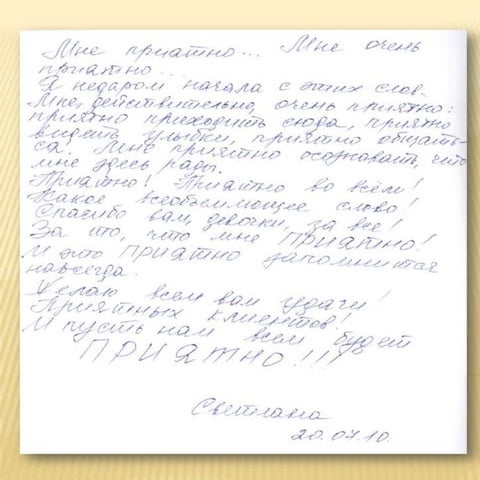 Мне приятно... Мне очень
приятно...
Я недаром начала с этих слов.
Мне, действительно, очень приятно:
приятно приходить сюда, приятно
видеть улыбки, приятно общать-
ся! Мне приятно осознавать, что
мне здесь рады.
Приятно! Приятно во всём!
Какое всеобъемлющее слово!
Спасибо вам, девочки, за все!
За то, что мне ПРИЯТНО!
И это ПРИЯТНО запомнится
навсегда.
Желаю всем вам удачи!
Приятных клиентов!
И пусть нам всем будет
ПРИЯТНО!!!
Светлана
20.07.10.